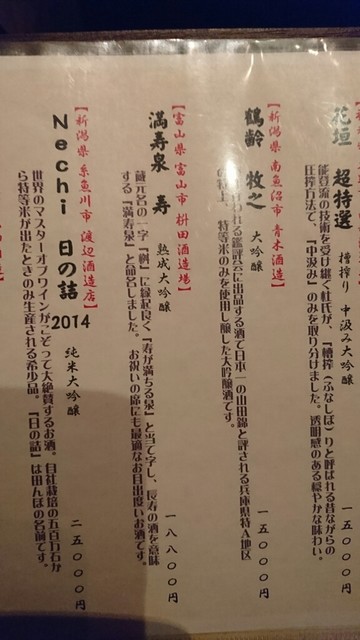 花垣 超特選 槽搾り 中汲み大吟醸 一五〇〇〇円
能登流の技術を受け継ぐ杜氏が、『槽搾（ふなしぼ）り』と呼ばれる昔ながらの
圧搾方法で、『中汲み』のみを取り分けました。透明感のある穏やかな味わい。
【新潟県 南魚沼市 青木酒造】
鶴齢 牧之 大吟醸 一五〇〇〇円
われる鑑評会に出品する酒で日本一の山田錦と評される兵庫県特A地区
の特上、特等米のみを使用し醸した大吟醸酒です。
【富山県 富山市 枡田酒造場】
満寿泉 寿 熟成大吟醸 一八〇〇〇円
蔵元名の一字『桝』に縁起良く『寿が満ちる泉』と当て字し、長寿の酒を意味
する『満寿泉』と命名しました。お祝いの席にも最適なお目出度いお酒です。
【新潟県 糸魚川市 渡辺酒造店】
Nechi 日の詰 2014 純米大吟醸 二五〇〇〇円
世界のマスターオブワインがこぞって大絶賛するお酒。自社栽培の五百万石か
ら特等米が出たときのみ生産される希少品。『日の詰』は田んぼの名前です。